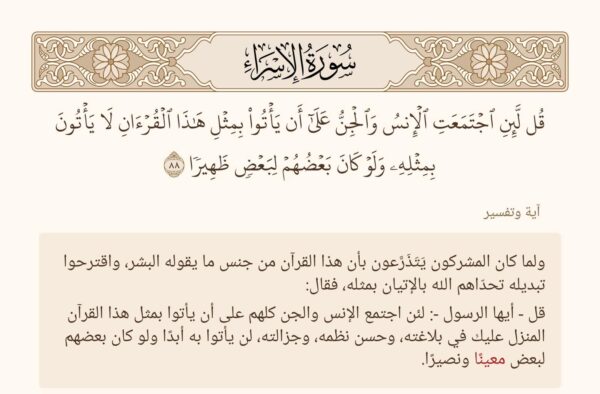 سُورَةُ الإِسۡرَاءِ
قُل لَّئِنِ ٱجۡتَمَعَتِ ٱلۡإِنسُ وَٱلۡجِنُّ عَلَىٰٓ أَن يَأۡتُواْ بِمِثۡلِ هَٰذَا ٱلۡقُرۡءَانِ لَا يَأۡتُونَ
بِمِثۡلِهِۦ وَلَوۡ كَانَ بَعۡضُهُمۡ لِبَعۡضٖ ظَهِيرٗا ٨٨
آية وتفسير
ولما كان المشركون يَتَذَرَّعون بأن هذا القرآن من جنس ما يقوله البشر، واقترحوا
تبديله تحدّاهم الله بالإتيان بمثله، فقال:
قل - أيها الرسول -: لئن اجتمع الإنس والجن كلهم على أن يأتوا بمثل هذا القرآن
المنزل عليك في بلاغته، وحسن نظمه، وجزالته، لن يأتوا به أبدًا ولو كان بعضهم
لبعض معينًا ونصيرًا.